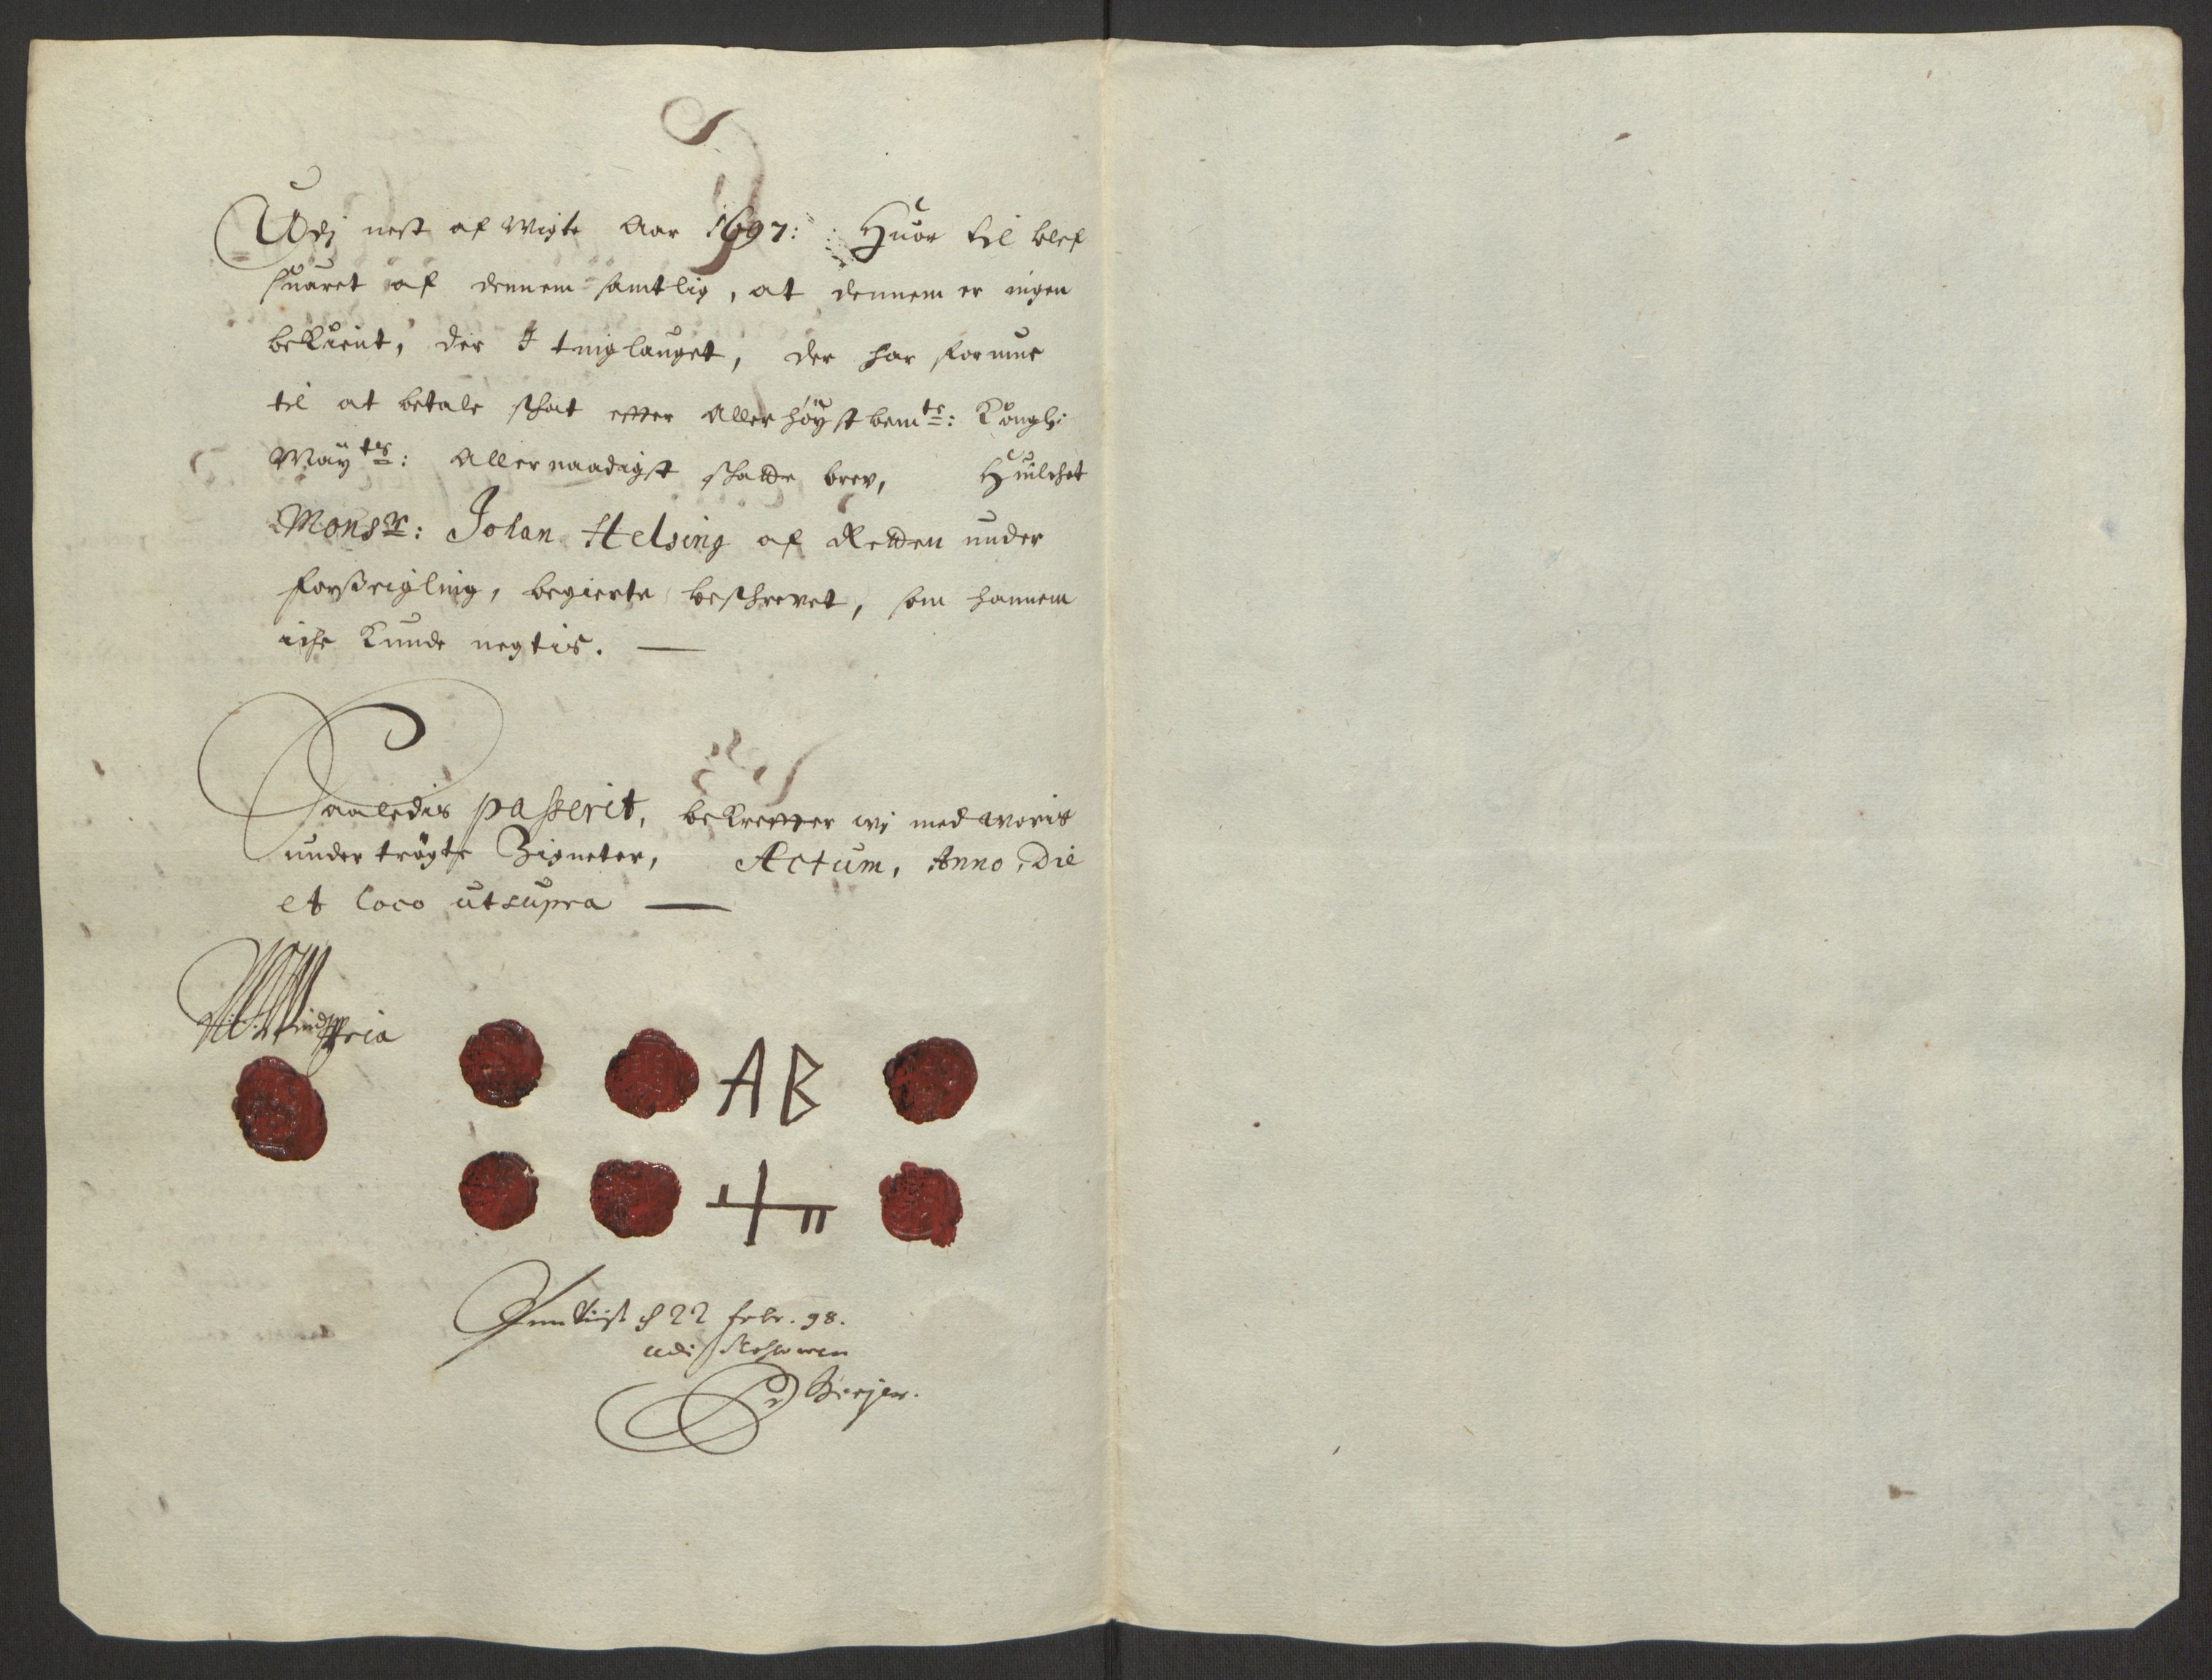 Udj nest af wigte Aar 1697: Huor til blef
suaret af dennem samtlig, at dennem er ingen
bekient, der I tinglauget, der har formue
til at betale skat effter Aller høyst bemte: Kongl:
Mayts: Allernaadigst skatte brev, Huilchet
Monsr: Johan Helsing af Retten under
forseigling, begierte beskrevet, som hannem
iche kunde negtis.
Saaledis passerit, bekreffter wj med woris
under trögte Zigneter, Actum, Anno, Die
et loco utsupra
AB
22 febr. 98.
udi